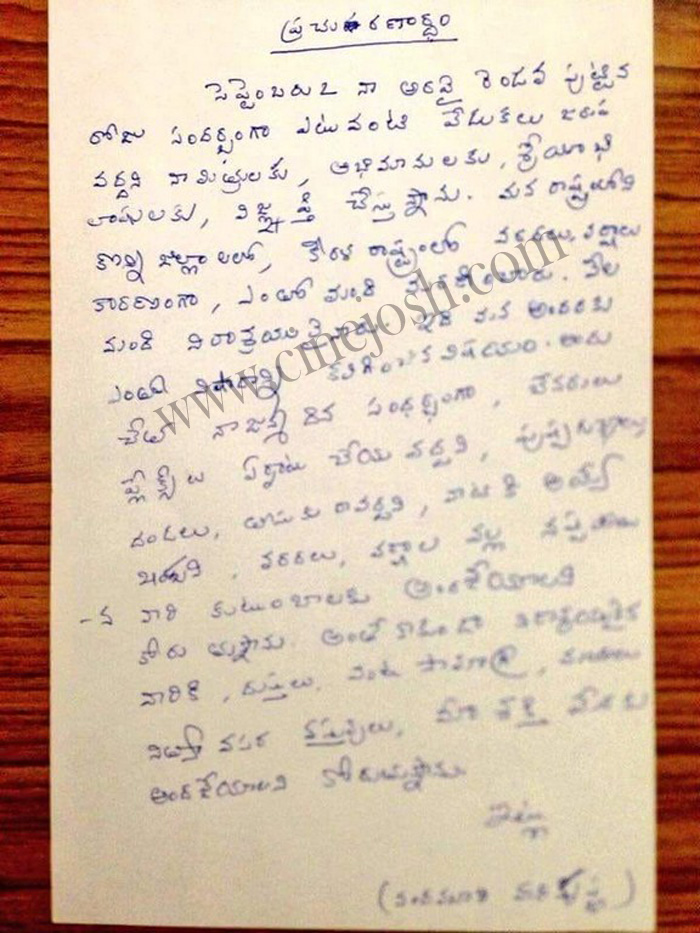 ప్రచురణార్థం
సెప్టెంబరు 2 నా అరవై రెండవ పుట్టిన
రోజు సందర్భంగా ఎటువంటి వేడుకలు జరుప
వద్దని నా మిత్రులకు, అభిమానులకు, శ్రేయోభి
లాషులకు, విజ్ఞప్తి చేస్తున్నాను. మన రాష్ట్రంలోని
కొన్ని జిల్లాలలో, కేరళ రాష్ట్రంలో వరదలు, వర్షాలు
కారణంగా, ఎంతో మంది మరణించారు. వేల
మంది నిరాశ్రయులైనారు. ఇది మన అందరకు
ఎంతో విషాదాన్ని కలిగించిన విషయం. అందు
చేత నా జన్మదిన సందర్భంగా, బేనరులు
ఫ్లెక్సీలు ఏర్పాటు చేయవద్దని, పుష్పగుచ్ఛాలు
దండలు, తీసుకు రావద్దని, వాటికి అయ్యే
ఖర్చుని, వరదలు, వర్షాల వల్ల నష్టపోయి
-న వారి కుటుంబాలకు అందచేయాలని
కోరుతున్నాను. అంతే కాకుండా నిరాశ్రయులైన
వారికి, దుస్తులు, వంట సామాగ్రి,
నిత్యావసర వస్తువులు, మీ శక్తి మేరకు
అందచేయాలని కోరుతున్నాను.
ఇట్లు
(నందమూరి హరికృష్ణ)
www.cinejosh.com